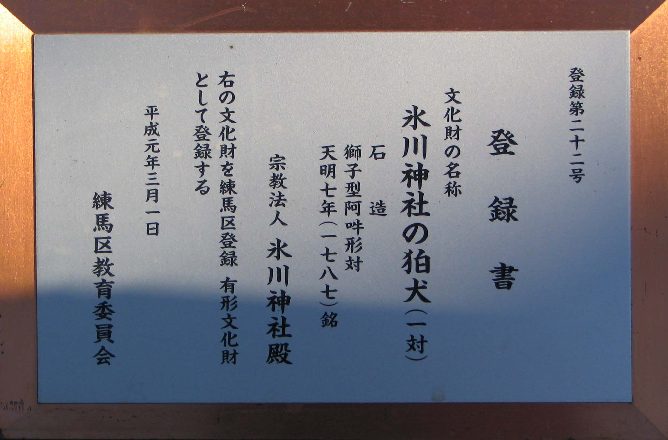 登録第二十二号
登録書
文化財の名称
氷川神社の狛犬(一対)
石造
獅子型阿吽形対
天明七年(一七八七)銘
宗教法人 氷川神社殿
右の文化財を練馬区登録 有形文化財
として登録する
平成元年三月一日
練馬区教育委員会